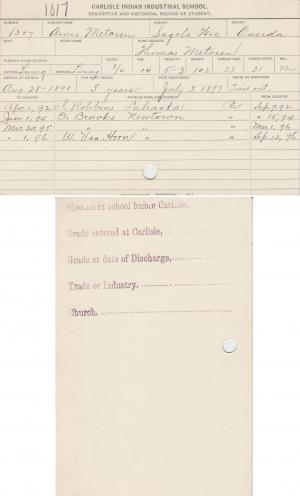 1017
CARLISLE INDIAN INDUSTRIAL SCHOOL.
DESCRIPTIVE AND HISTORICAL RECORD OF STUDENT.
NUMBER ENGLISH NAME AGENCY NATION
1307 Metoxen Sagola Wis Oneida
INDIAN NAME HOME ADDRESS
Thomas Metoxen
PARENTS LIVING OR DEAD BLOOD AGE HEIGHT WEIGHT FORCED INSP. FORCED EXPR. SEX
Living Living 3/4 14 5-3 102 33 31 M
ARRIVED AT SCHOOL FOR WHAT PERIOD DATE DISCHARGED CAUSE OF DISCHARGE
Aug 28-1891 5 years July 3 1897 Time out
TO COUNTRY PATRONS NAME AND ADDRESS FROM COUNTRY
Apr 2, 92 E Robbins Lahaska Pa Sep 7, 92
June 1, 94 Brooks Newtown " " 10, 94
Mar 20, 95 " " " " Mar 1, 96
" 1, 96 W. Van Horn " " Sep 12, 96
Months in school before Carlisle,
Grade entered at Carlisle,
Grade at date of Discharge,
Trade or Industry,
Church,